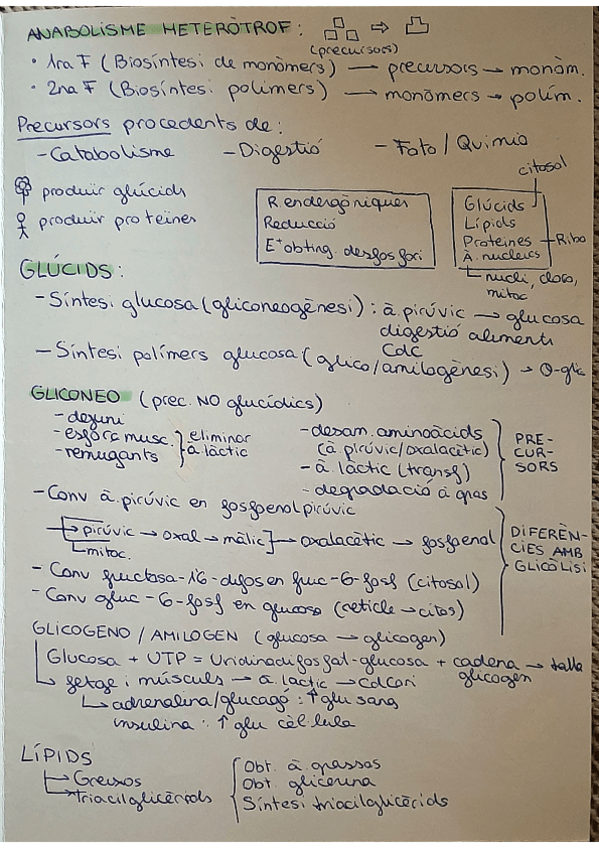 ANABOLISME HETERÒTROF:
(precursors)
• 1ra F (Biosíntesi de monòmers) — precursors → monòm.
• 2na F (Biosíntesi polímers) → monòmers → polím.
Precursors procedents de:
- Catabolisme - Digestió - Foto / Quimio
produir glúcids
produir proteïnes
R. endergòniques
Reducció
E⁺ obting. desfosfori
citosol
Glúcids
Lípids
Proteïnes - Ribo
À. nucleics
nucli, cloro,
mitoc
GLÚCIDS:
- Síntesi glucosa (gliconeogènesi): à. pirúvic → glucosa
digestió aliments
CdC
- Síntesi polímers glucosa (glico/amilogènesi) → O-glic
GLICONEO (prec. NO glucídics)
- dejuni
- esforç musc.
- remugants
eliminar
à. làctic
- desam. aminoàcids
(à pirúvic/oxalacètic)
- à. làctic (transf)
- degradació à gras
PRE-
CUR-
SORS
- Conv à. pirúvic en fosfoenolpirúvic
pirúvic → oxal → màlic → oxalacètic → fosfoenol
mitoc.
- Conv fructosa-1'6-difos en fruc-6-fosf (citosol)
- Conv gluc-6-fosf en glucosa (reticle → citos)
DIFERÈN-
CIES AMB
GLICÒLISI
GLICOGENO / AMILOGEN (glucosa → glicogen)
Glucosa + UTP = Uridinadifosfat-glucosa + cadena → talla
glicogen
fetge i músculs → à. làctic → CdCori
adrenalina/glucagó: ↑ glu sang
insulina: ↑ glu cèl·lula
LÍPIDS
Greixos
Triacilglicèrids
Obt. à. grassos
Obt. glicerina
Síntesi triacilglicèrids